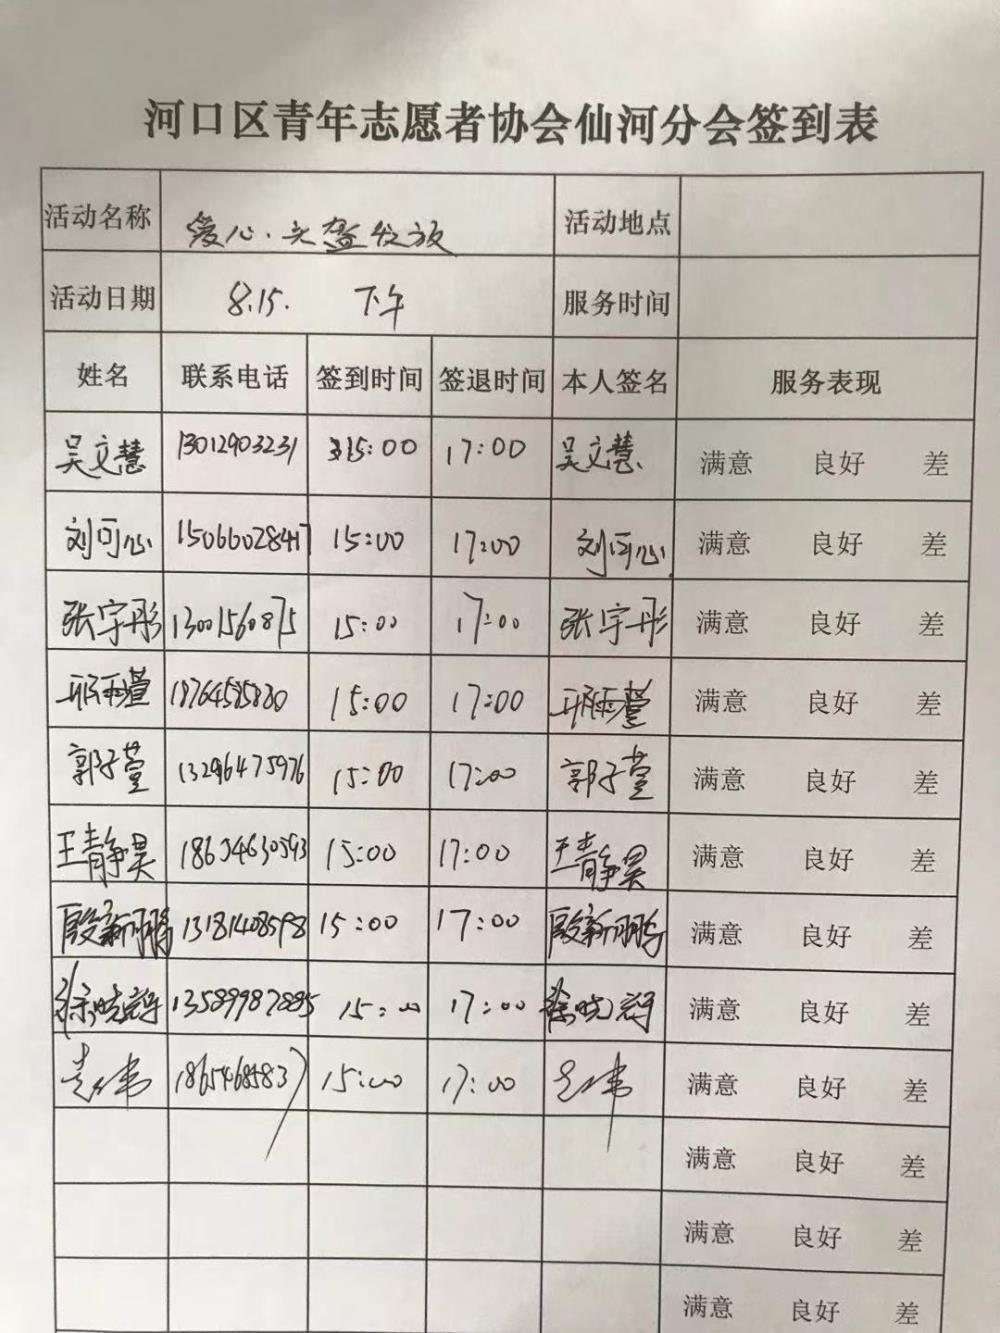 河口区青年志愿者协会仙河分会签到表
活动名称 爱心·头盔发放 活动地点
活动日期 8.15. 下午 服务时间
姓名 联系电话 签到时间 签退时间 本人签名 服务表现
吴文慧 13012903231 15:00 17:00 吴文慧 满意 良好 差
刘可心 15066028417 15:00 17:00 刘可心 满意 良好 差
张宇彤 13001560875 15:00 17:00 张宇彤 满意 良好 差
邢雨萱 18764585880 15:00 17:00 邢雨萱 满意 良好 差
郭子萱 13296475976 15:00 17:00 郭子萱 满意 良好 差
王静昊 18654630593 15:00 17:00 王静昊 满意 良好 差
殷新鹏 13181408598 15:00 17:00 殷新鹏 满意 良好 差
13589987895 15:00 17:00 满意 良好 差
18654685837 15:00 17:00 满意 良好 差
满意 良好 差
满意 良好 差
满意 良好 差